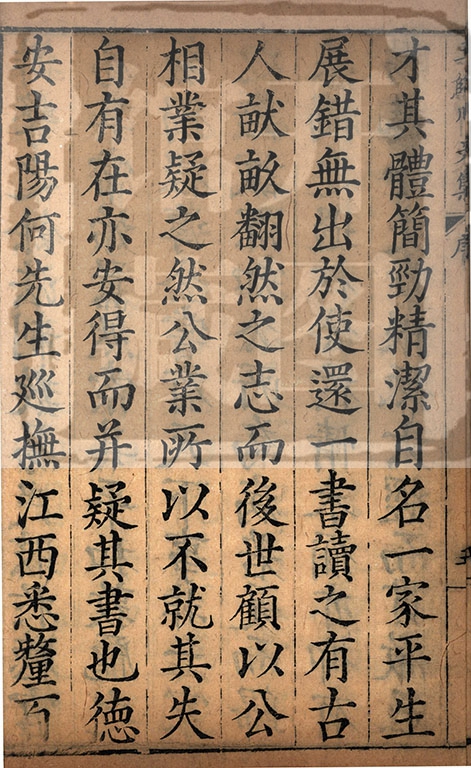 才其體簡勁精潔自名一家平生
展錯無出於使還一書讀之有古
人畎畝翻然之志而後世顧以公
相業疑之然公業所以不就其失
自有在亦安得而并疑其書也德
安吉陽何先生廵撫江西悉釐百